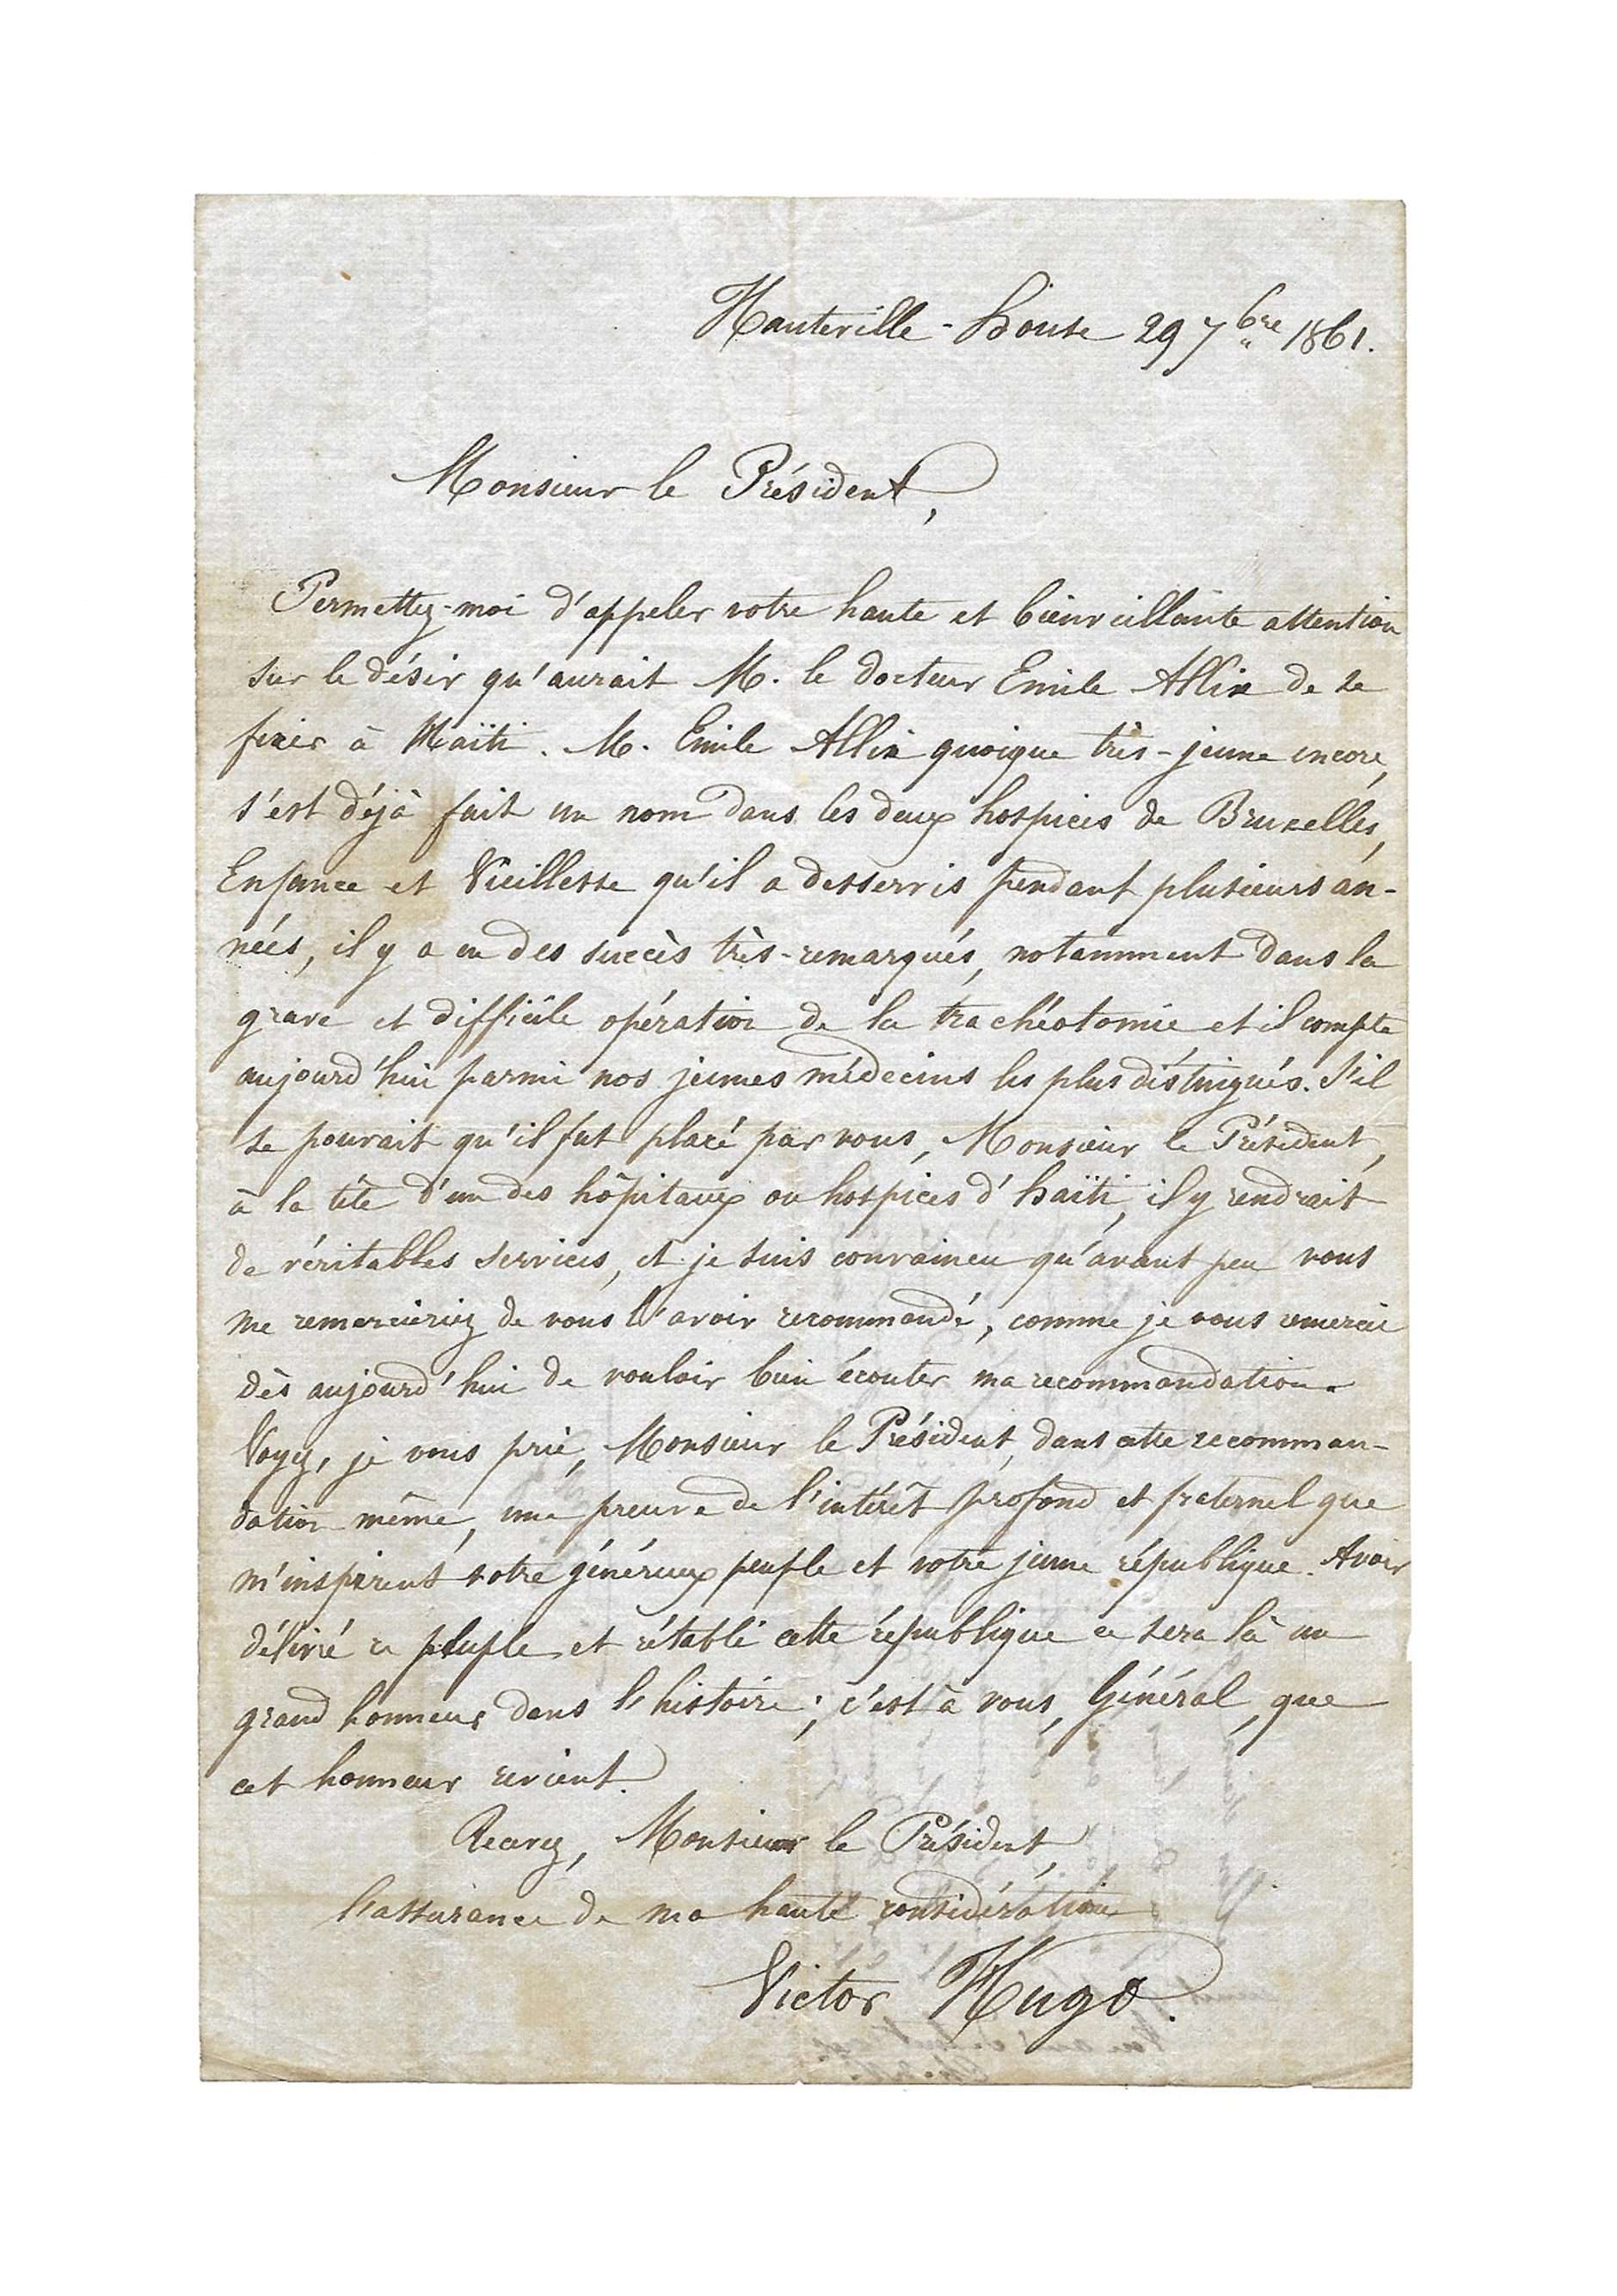 Hauteville-House 29 7bre 1861.
Monsieur le Président,
Permettez-moi d'appeler votre haute et bienveillante attention
sur le désir qu'aurait M. le docteur Emile Allix de se
fixer à Haïti. M. Emile Allix quoique très-jeune encore,
s'est déjà fait un nom dans les deux hospices de Bruxelles,
Enfance et Vieillesse qu'il a desservis pendant plusieurs an-
nées, il y a eu des succès très-remarqués, notamment dans la
grave et difficile opération de la trachéotomie et il compte
aujourd'hui parmi nos jeunes médecins les plus distingués. S'il
se pouvait qu'il fut placé par vous, Monsieur le Président,
à la tête d'un des hôpitaux ou hospices d'haïti, il y rendrait
de véritables services, et je suis convaincu qu'avant peu vous
me remercieriez de vous l'avoir recommandé, comme je vous remercie
dès aujourd'hui de vouloir bien écouter ma recommandation.
Voyez, je vous prie, Monsieur le Président, dans cette recomman-
dation même, une preuve de l'intérêt profond et fraternel que
m'inspirent votre généreux peuple et votre jeune république. Avoir
délivré ce peuple et rétabli cette république ce sera là un
grand honneur dans l'histoire; c'est à vous, Général, que
cet honneur revient.
Recevez, Monsieur le Président,
l'assurance de ma haute considération
Victor Hugo.